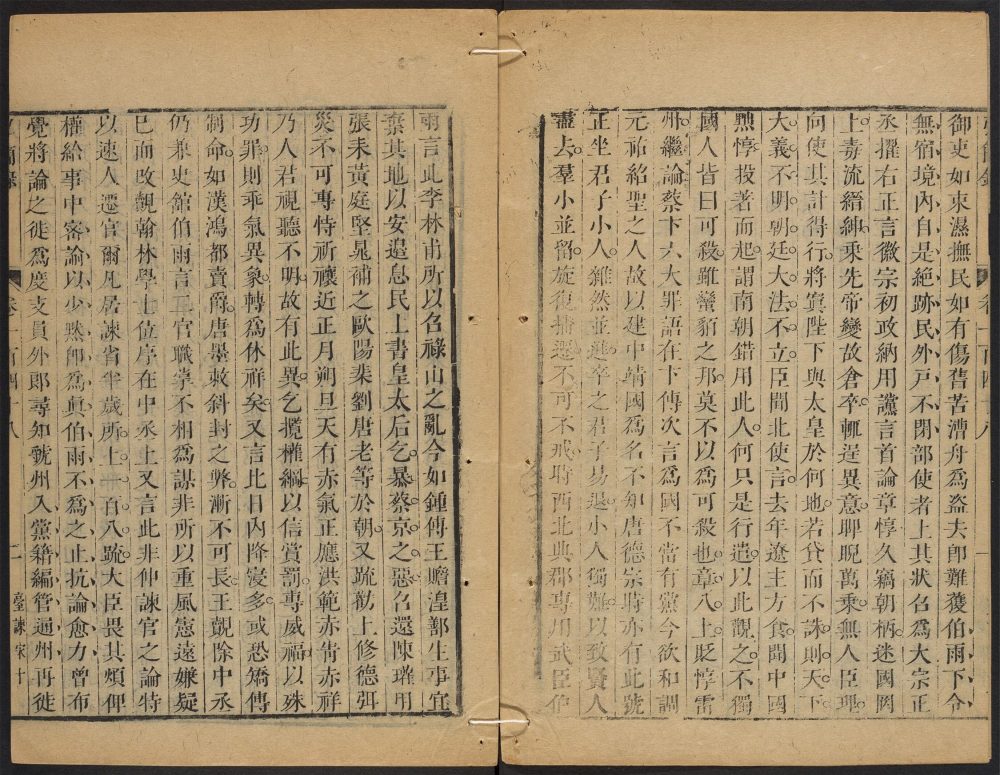 御吏如束濕撫民如有傷舊苦漕舟為盜夫即難獲伯雨下令
無宿境內自是絕跡民外戶不閉部使者上其狀召為大宗正
丞擢右正言徽宗初政納用讜言首論章惇久竊朝柄迷國罔
上毒流縉紳乘先帝變故倉卒輒逞異意睥睨萬乘無人臣理
向使其計得行將寘陛下與太皇於何地若貸而不誅則天下
大義不明朝廷大法不立臣聞北使言去年遼主方食聞中國
黜惇投箸而起謂南朝錯用此人何只是行遣以此觀之不獨
國人皆曰可殺雖蠻貊之邦莫不以為可殺也章八上貶惇雷
州繼論蔡卞六大罪語在卞傳次言為國不當有黨今欲和調
元祐紹聖之人故以建中靖國為名不知唐德宗時亦有此號
正坐君子小人雜然並進卒之君子易退小人獨難以致賢人
盡去羣小並留旋復播遷不可不戒時西北典郡專用武臣伯
雨言此李林甫所以召祿山之亂今如鍾傳王贍湟鄯生事宜
棄其地以安邊息民上書皇太后乞暴蔡京之惡召還陳瓘明
張耒黃庭堅晁補之歐陽棐劉唐老等於朝又疏勸上修德弭
災不可專恃祈禳近正月朔旦天有赤氣正應洪範赤眚赤祥
乃人君視聽不明故有此異乞攬權綱以信賞罰專威福以殊
功罪則乖氣異象轉為休祥矣又言比日內降寖多或恐矯傳
制命如漢鴻都賣爵唐墨敕斜封之弊漸不可長王覿除中丞
仍兼史館伯雨言二官職掌不相為謀非所以重風憲遠嫌疑
已而改覿翰林學士位序在中丞上又言此非伸諫官之論特
以速人遷官爾凡居諫省半歲所上一百八疏大臣畏其煩俾
權給事中密諭以少黙即為真伯雨不為之止抗論愈力曾布
覺將論之徙為度支員外郎尋知虢州入黨籍編管通州再徙
卷一百四十八
二
臺諫宋十